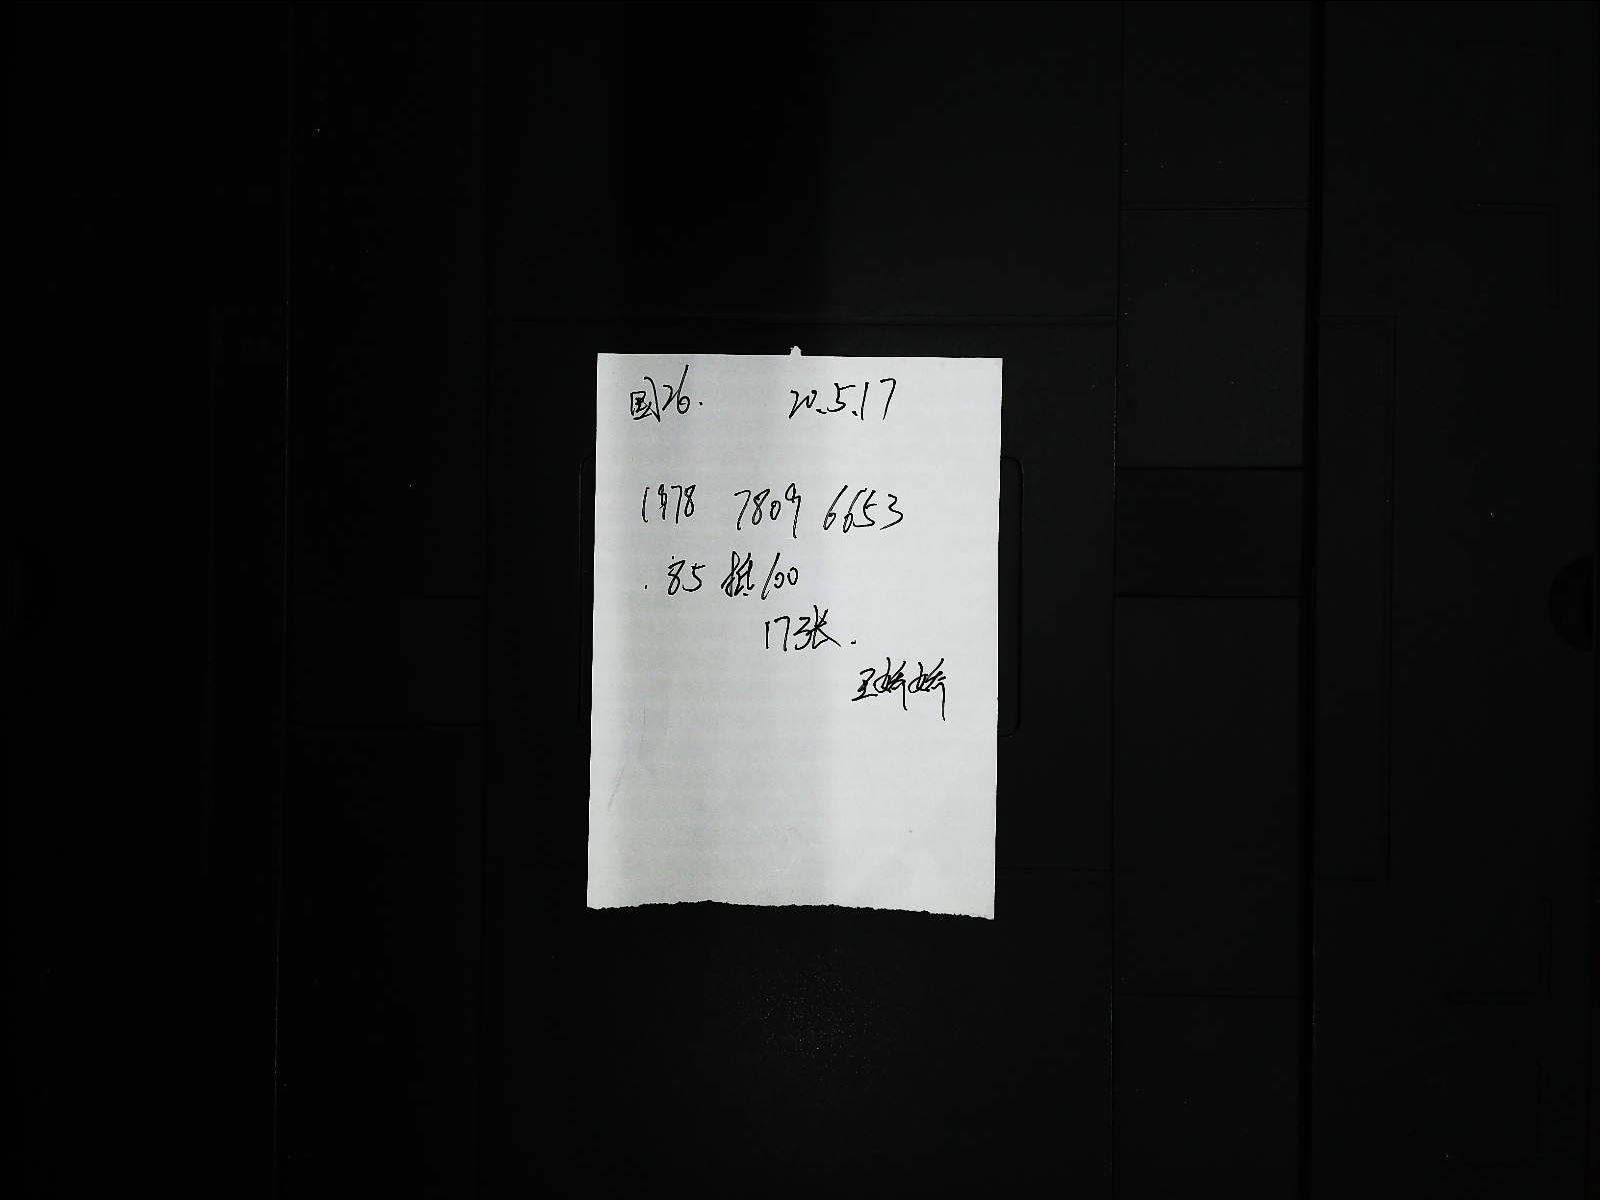 国26. 20.5.17
1978 7809 6653
.85抵100
17张.
王娇娇